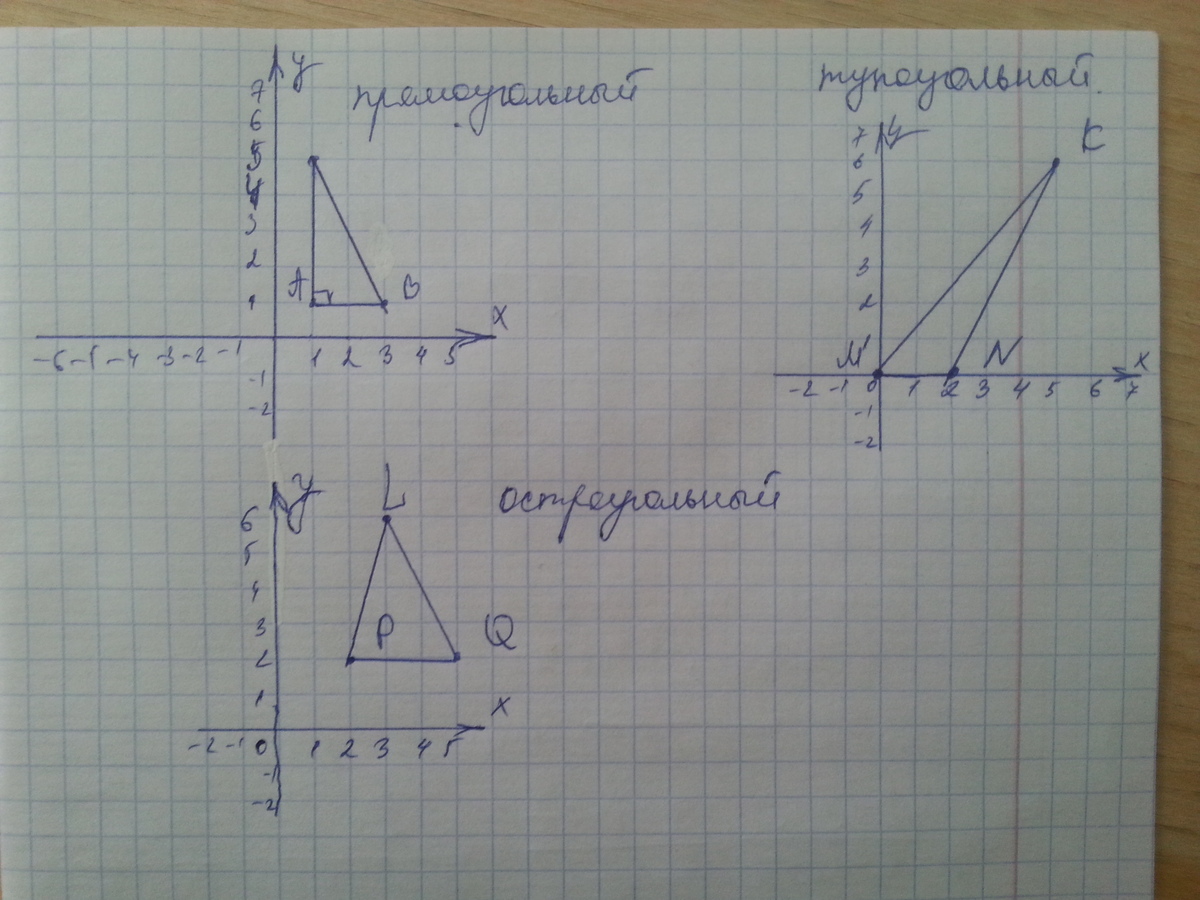 y
прямоугольный
7
6
5
4
3
2
1
A
B
x
-6 -5 -4 -3 -2 -1 1 2 3 4 5
-1
-2
тупоугольный.
y
K
7
6
5
4
3
2
M
N
x
-2 -1 0 1 2 3 4 5 6 7
-1
-2
y
L
остроугольный
6
5
4
3
2
1
P
Q
x
-2 -1 0 1 2 3 4 5
-1
-2